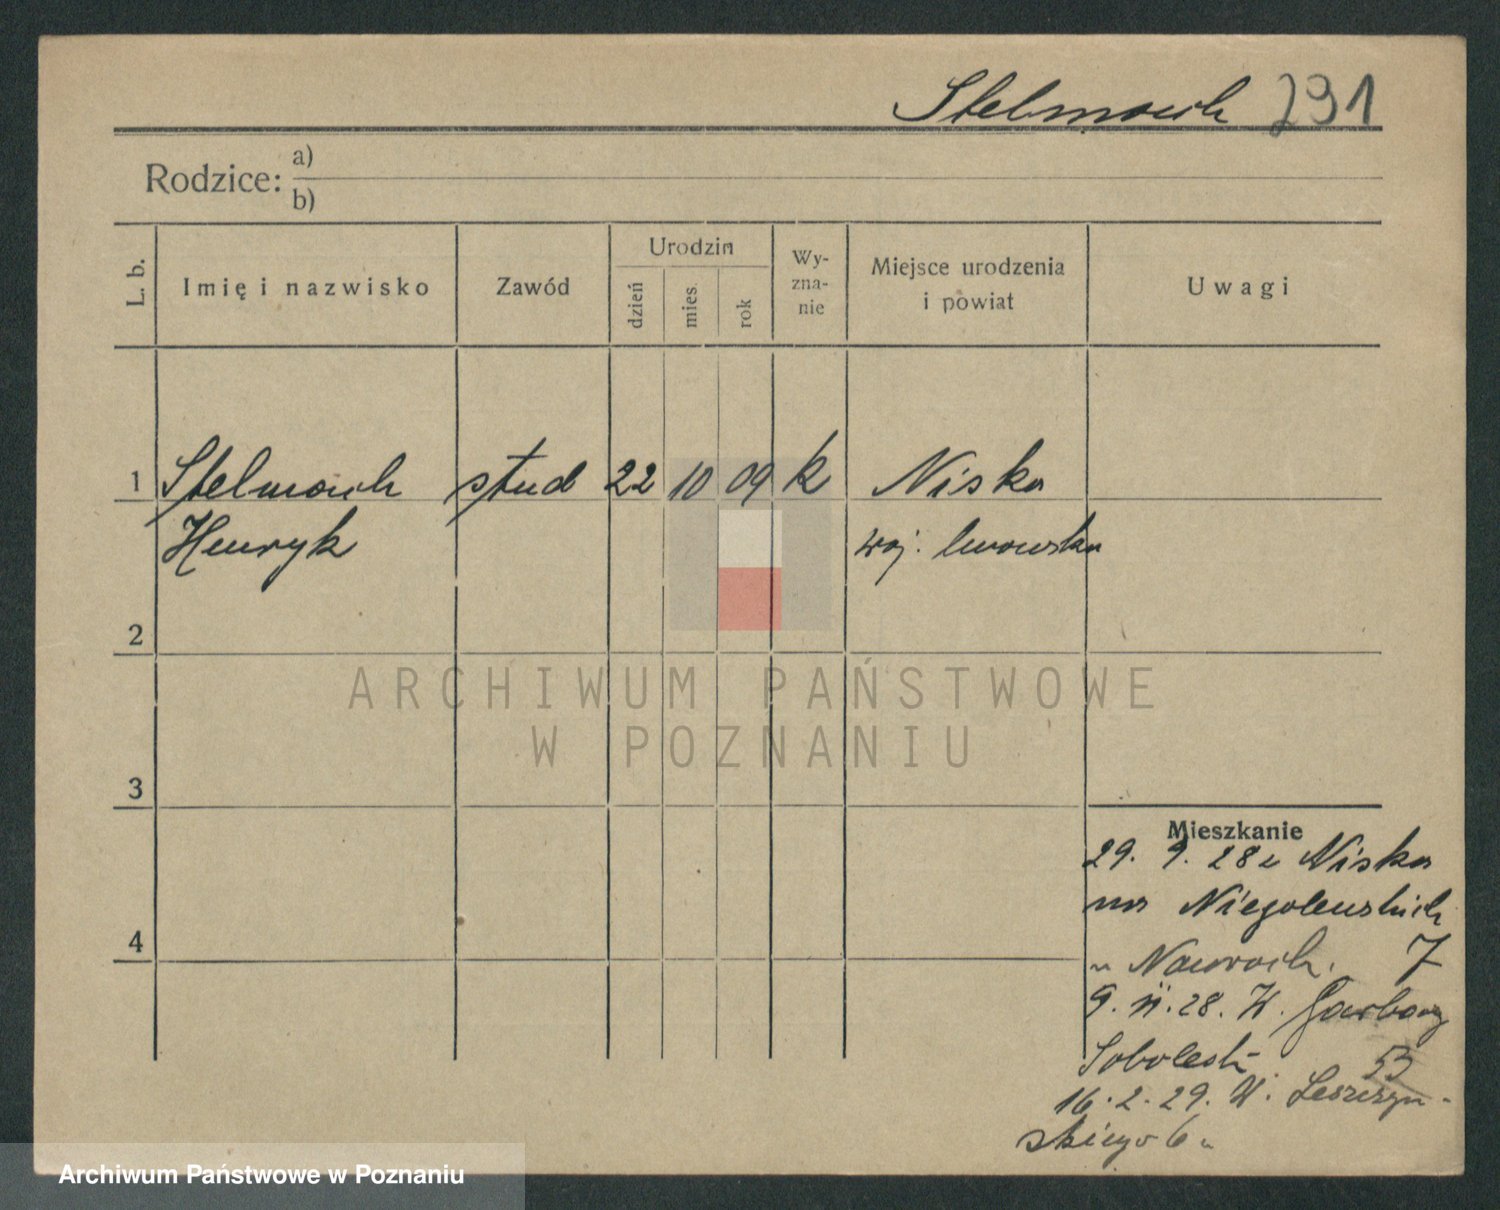 Stelmach 291
Rodzice: a)
b)
L. b.
Imię i nazwisko
Zawód
Urodzin
dzień
mies.
rok
Wy-
zna-
nie
Miejsce urodzenia
i powiat
Uwagi
1 Stelmach stud 22 10 09 k Niska
Henryk woj. lwowska
2
ARCHIWUM PAŃSTWOWE
W POZNANIU
3
Mieszkanie
29. 9. 28 z Niska
na Niegolewskich
7
9. 11. 28. W. Garbary
53
16. 2. 29. W. Leszczyń-
skiego 6
4
Archiwum Państwowe w Poznaniu